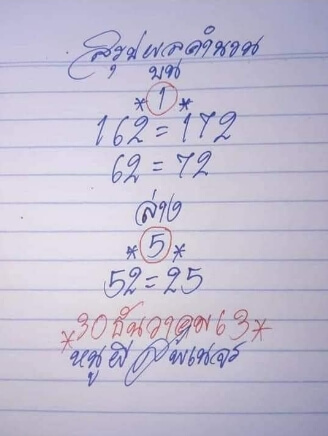 สรุปผลคำนวน
บน
*1*
162=172
62=72
ล่าง
*5*
52=25
*30ธันวาคม63*
หนูผี สพั้เนจร